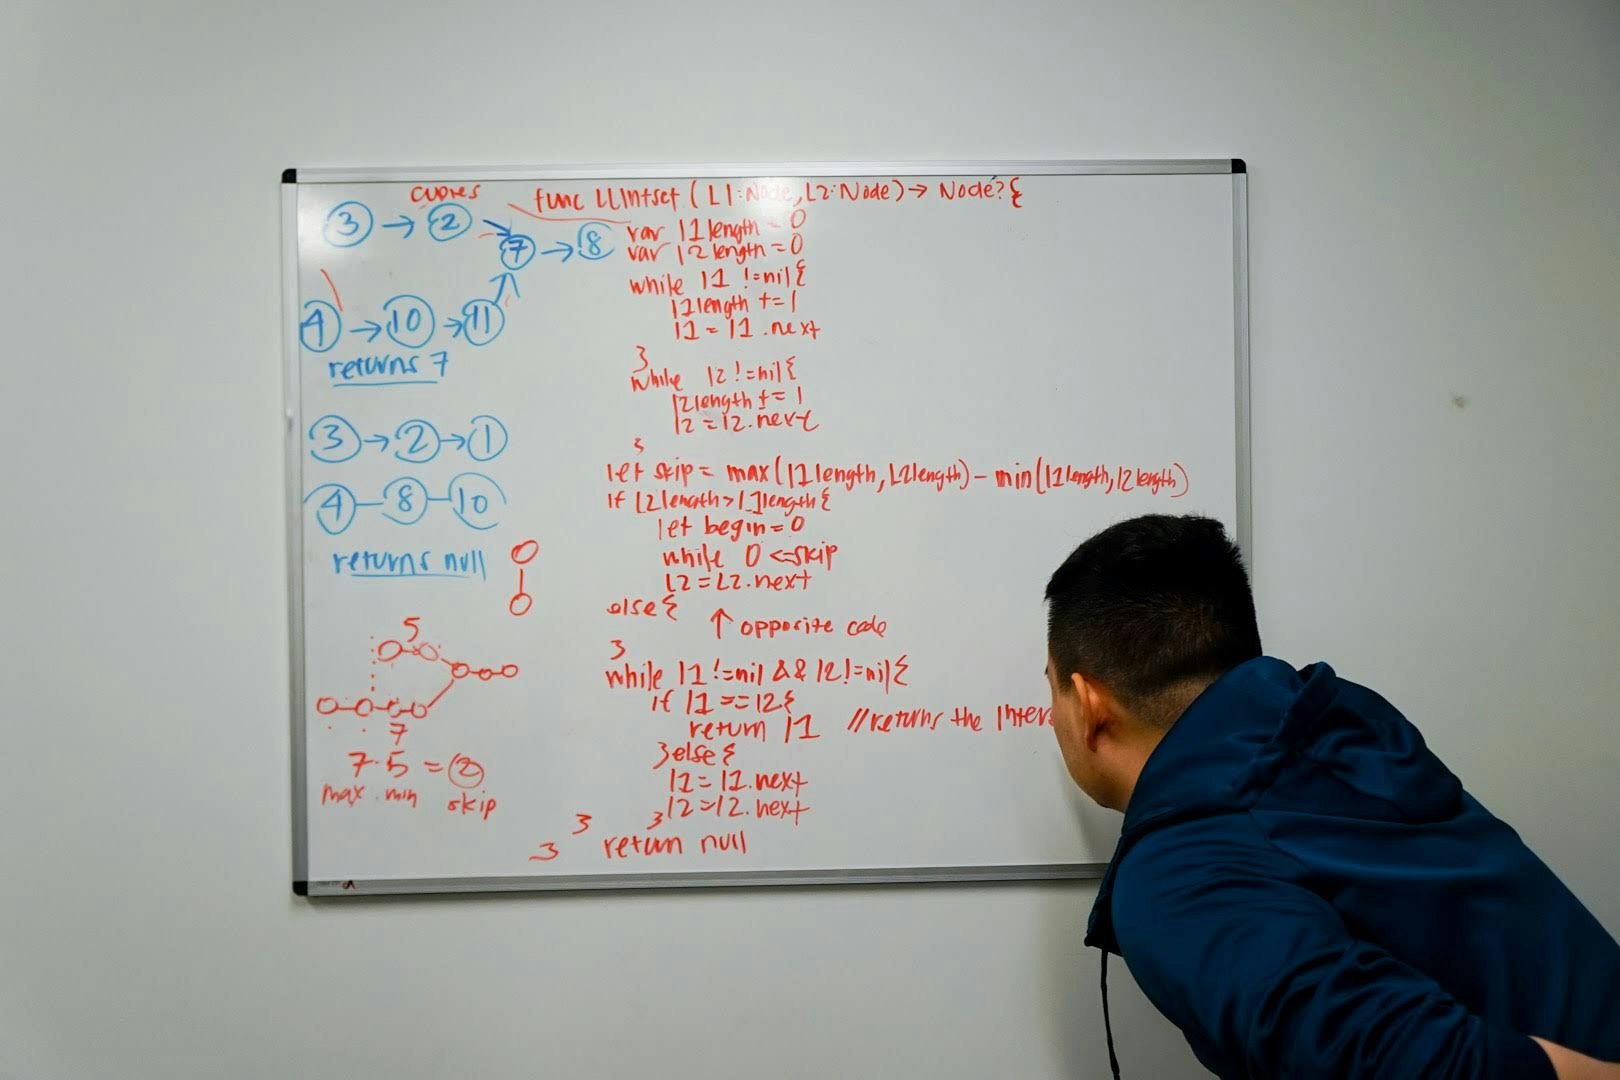 3 → 2
7 → 8
4 → 10 → 11
returns 7
3 → 2 → 1
4 - 8 - 10
returns null
5
7
7-5 = 2
max min skip
func LLIntset (L1:Node, L2:Node) → Node? {
var l1length = 0
var l2length = 0
while l1 != nil {
l1length += 1
l1 = l1.next
}
while l2 != nil {
l2length += 1
l2 = l2.next
}
let skip = max(l1length, L2length) - min(l1length, l2length)
if L2length > L1length {
let begin = 0
while 0 <= skip
L2 = L2.next
else {
↑ opposite code
}
while l1 != nil && l2 != nil {
if l1 == l2 {
return l1 //returns the
} else {
l1 = l1.next
l2 = l2.next
}
}
return null
}